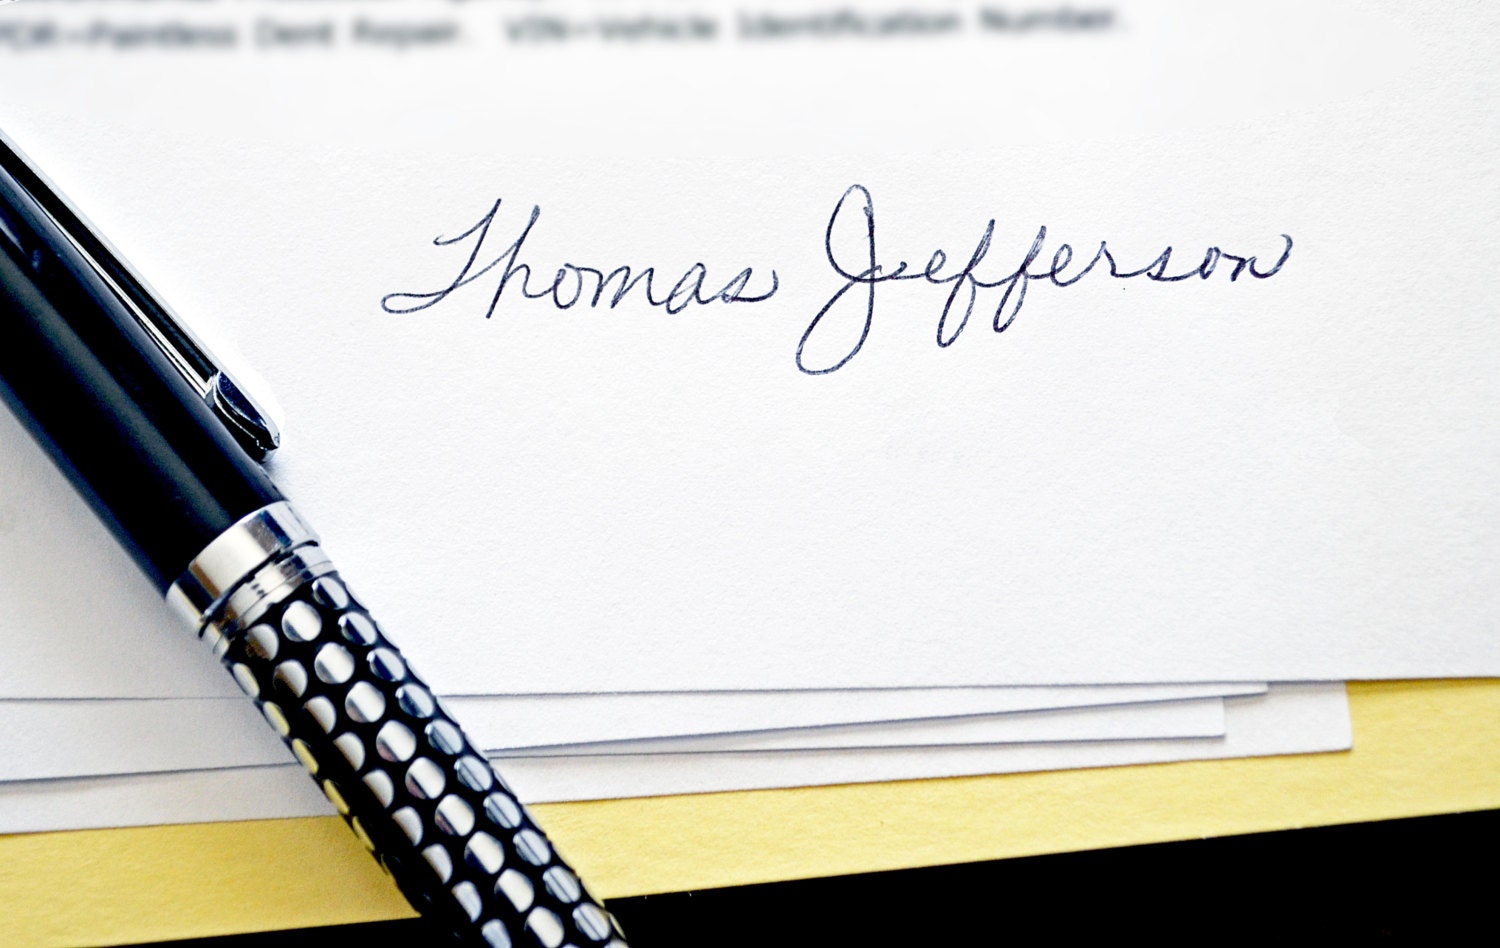 PDR—Paintless Dent Repair. VIN—Vehicle Identification Number.
Thomas Jefferson